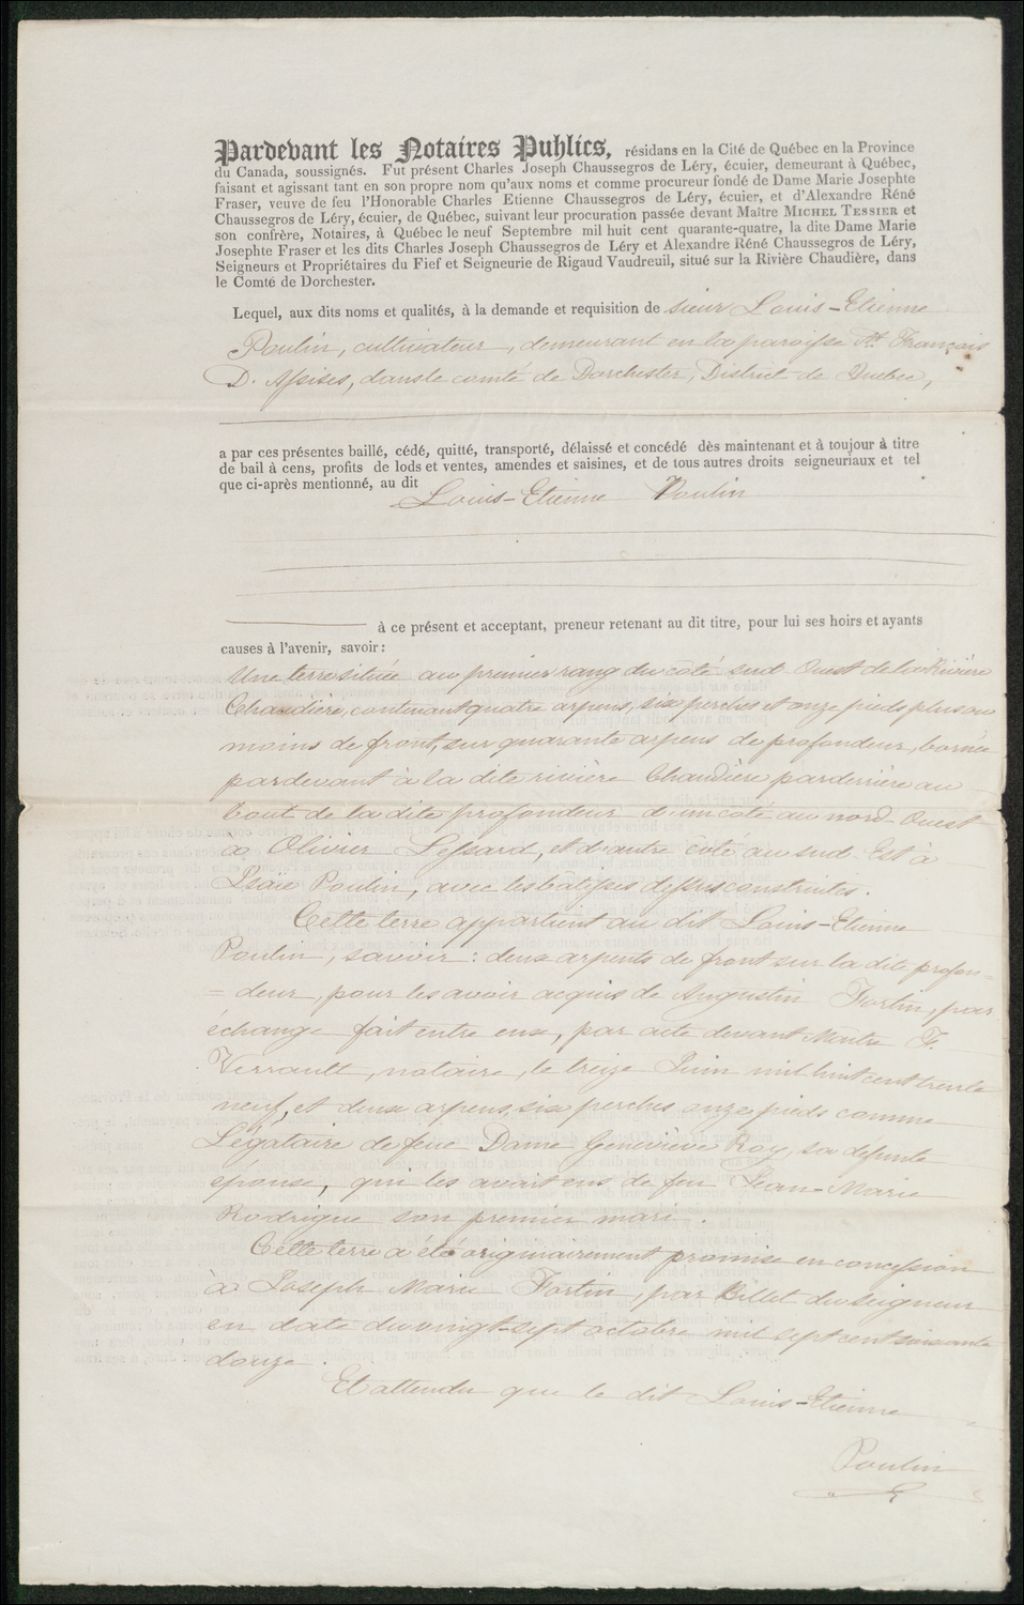 Pardevant les Notaires Publics, résidans en la Cité de Québec en la Province
du Canada, soussignés. Fut présent Charles Joseph Chaussegros de Léry, écuier, demeurant à Québec,
faisant et agissant tant en son propre nom qu'aux noms et comme procureur fondé de Dame Marie Josephte
Fraser, veuve de feu l'Honorable Charles Etienne Chaussegros de Léry, écuier, et d'Alexandre Réné
Chaussegros de Léry, écuier, de Québec, suivant leur procuration passée devant Maître MICHEL TESSIER et
son confrère, Notaires, à Québec le neuf Septembre mil huit cent quarante-quatre, la dite Dame Marie
Josephte Fraser et les dits Charles Joseph Chaussegros de Léry et Alexandre Réné Chaussegros de Léry,
Seigneurs et Propriétaires du Fief et Seigneurie de Rigaud Vaudreuil, situé sur la Rivière Chaudière, dans
le Comté de Dorchester.
Lequel, aux dits noms et qualités, à la demande et requisition de sieur Louis-Etienne
Poulin, cultivateur, demeurant en la paroisse St. François
D'Assises, dans le comté de Dorchester, District de Quebec,
a par ces présentes baillé, cédé, quitté, transporté, délaissé et concédé dès maintenant et à toujour à titre
de bail à cens, profits de lods et ventes, amendes et saisines, et de tous autres droits seigneuriaux et tel
que ci-après mentionné, au dit Louis-Etienne Poulin
à ce présent et acceptant, preneur retenant au dit titre, pour lui ses hoirs et ayants
causes à l'avenir, savoir :
Une terre située au premier rang du côté sud-Ouest de la Rivière
Chaudière, contenant quatre arpens, six perches et onze pieds plus ou
moins de front, sur quarante arpens de profondeur, bornée
pardevant à la dite rivière Chaudière parderrière au
bout de la dite profondeur d'un côté au nord-Ouest
à Olivier Lessard, et d'autre côté au sud-Est à
Isaïe Poulin, avec les bâtisses dessus construites.
Cette terre appartient au dit Louis-Etienne
Poulin, savoir : deux arpents de front sur la dite profon=
=deur, pour les avoir acquis de Augustin Fortin, par
échange fait entre eux, par acte devant Maître F.
Verrault, notaire, le treize Juin mil huit cent trente
neuf, et deux arpens, six perches onze pieds comme
Légataire de feue Dame Geneviève Roy, sa défunte
épouse, qui les avait eus de feu Jean-Marie
Rodrigue son premier mari.
Cette terre a été originairement promise en concession
à Joseph Marie Fortin, par Billet du seigneur
en date du vingt-sept octobre mil sept cent soixante
douze.
Et attendu que le dit Louis-Etienne
Poulin